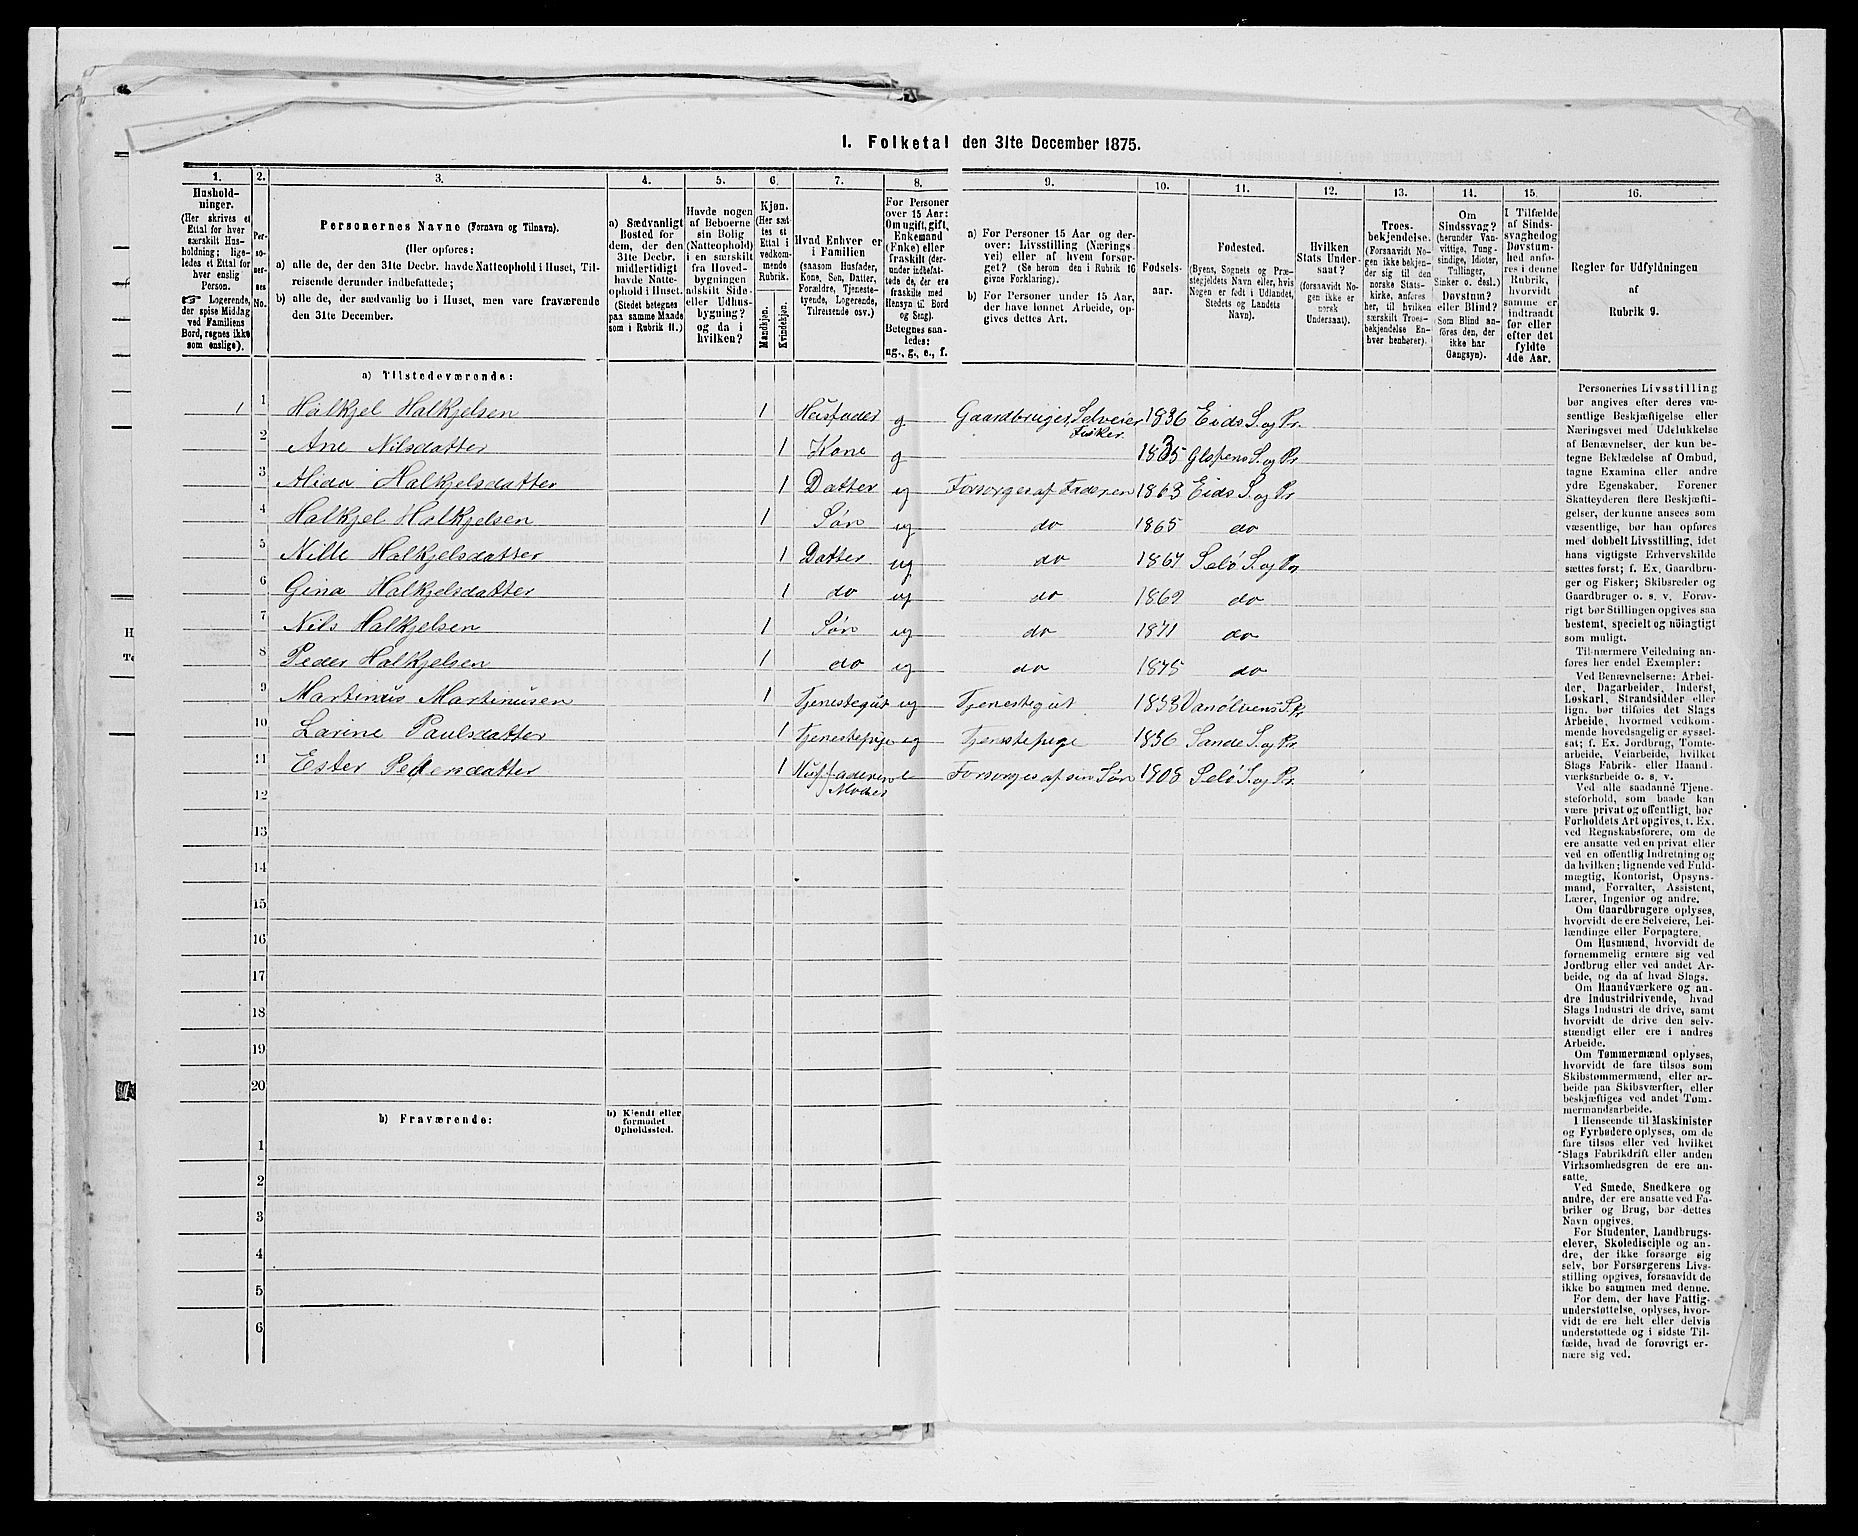 I. Folketal den 31te December 1875.
1. 2. 3. 4. 5. 6. 7. 8. 9. 10. 11. 12. 13. 14. 15. 16.
Hushold-
ninger.
(Her skrives et
Ettal for hver
særskilt Hus-
holdning; lige-
ledes et Ettal for
hver enslig
Person.
☞ Logerende,
der spise Middag
ved Familiens
Bord, regnes ikke
som enslige).
Per-
so-
ner-
nes
No.
Personernes Navne (Fornavn og Tilnavn).
(Her opføres:
a) alle de, der den 31te Decbr. havde Natteophold i Huset, Til-
reisende derunder indbefattede;
b) alle de, der sædvanlig bo i Huset, men vare fraværende
den 31te December.
a) Sædvanligt
Bosted for
dem, der den
31te Decbr.
midlertidigt
havde Natte-
ophold i Huset.
(Stedet betegnes
paa samme Maade
som i Rubrik 11.)
Havde nogen
af Beboerne
sin Bolig
(Natteophold)
i en særskilt
fra Hoved-
bygningen
adskilt Side-
eller Udhus-
bygning?
og da i
hvilken?
Kjøn.
(Her sæt-
tes et
Ettal i
vedkom-
mende
Rubrik.
Mandkjøn.
Kvindekjøn.
Hvad Enhver er
i Familien
(saasom Husfader,
Kone, Søn, Datter,
Forældre, Tjeneste-
tyende, Logerende,
Tilreisende osv.)
For Personer
over 15 Aar:
Om ugift, gift,
Enkemand
(Enke) eller
fraskilt (der-
under indbefat-
tede de, der ere
fraskilte med
Hensyn til Bord
og Seng).
Betegnes saa-
ledes:
ug., g., e., f.
a) For Personer 15 Aar og der-
over: Livsstilling (Nærings-
vei) eller af hvem forsør-
get? (Se herom den i Rubrik 16
givne Forklaring).
b) For Personer under 15 Aar,
der have lønnet Arbeide, op-
gives dettes Art.
Fødsels-
aar.
Fødested.
(Byens, Sognets og Præ-
stegjeldets Navn eller, hvis
Nogen er født i Udlandet,
Stedets og Landets
Navn).
Hvilken
Stats Under-
saat?
(forsaavidt No-
gen ikke er
norsk
Undersaat).
Troes-
bekjendelse.
(Forsaavidt No-
gen ikke bekjen-
der sig til den
norske Stats-
kirke, anføres
her, til hvilken
særskilt Troes-
bekjendelse En-
hver henhører).
Om
Sindssvag?
(herunder Van-
vittige, Tung-
sindige, Idioter,
Tullinger,
Sinker o. desl.)
Døvstum?
eller Blind?
(Som Blind an-
føres den, der
ikke har
Gangsyn).
I Tilfælde
af Sinds-
svaghed og
Døvstum-
hed anfø-
res i denne
Rubrik,
hvorvidt
samme er
indtraadt
før eller
efter det
fyldte
4de Aar.
Regler for Udfyldningen
af
Rubrik 9.
a) Tilstedeværende:
1 1 Halkjel Halkjelsen 1 Husfader g Gaardbruger, Selveier Fisker 1836 Eids S. og Pr.
2 Ane Nilsdatter 1 Kone g 1835 S. og Pr
3 Alida Halkjelsdatter 1 Datter ug Forsørges af Faderen 1863 Eids S. og Pr
4 Halkjel Halkjelsen 1 Søn ug do 1865 do
5 Nille Halkjelsdatter 1 Datter ug do 1867 Selø S. og Pr
6 Gina Halkjelsdatter 1 do ug do 1869 do
7 Nils Halkjelsen 1 Søn ug do 1871 do
8 Peder Halkjelsen 1 do ug do 1875 do
9 Martinus Martinusen 1 Tjenestegut ug Tjenestegut S. Pr
10 Larine Paulsdatter 1 Tjenestepige ug Tjenestepige 1836 Sande S. og Pr.
11 Ester Pedersdatter 1 Husfaderens Moder e Forsørges af sin Søn 1808 Selø S. og Pr.
12
13
14
15
16
17
18
19
20
b) Fraværende:
b) Kjendt eller
formodet
Opholdssted.
1
2
3
4
5
6
Personernes Livsstilling
bør angives efter deres væ-
sentlige Beskjæftigelse eller
Næringsvei med Udelukkelse
af Benævnelser, der kun be-
tegne Beklædelse af Ombud,
tagne Examina eller andre
ydre Egenskaber. Forener
Skatteyderen flere Beskjæfti-
gelser, der kunne ansees som
væsentlige, bør han opføres
med dobbelt Livsstilling, idet
hans vigtigste Erhvervskilde
sættes først; f. Ex. Gaardbru-
ger og Fisker; Skibsreder og
Gaardbruger o. s. v. Forøv-
rigt bør Stillingen opgives saa
bestemt, specielt og nöiagtigt
som muligt.
Til nærmere Veiledning an-
føres her endel Exempler:
Ved Benævnelserne: Arbei-
der, Dagarbeider, Inderst,
Løskarl, Strandsidder eller
lign. bør tilføies det Slags
Arbeide, hvormed vedkom-
mende hovedsagelig er syssel-
sat; f. Ex. Jordbrug, Tomte-
arbeide, Veiarbeide, hvilket
Slags Fabrik- eller Haand-
værksarbeide o. s. v.
Ved alle saadanne Tjene-
steforhold, som baade kan
være privat og offentligt, bør
Forholdets Art opgives, t. Ex.
ved Regnskabsførere, om de
ere ansatte ved en privat eller
ved en offentlig Indretning og
da hvilken; lignende ved Fuld-
mægtig, Kontorist, Opsyns-
mand, Forvalter, Assistent,
Lærer, Ingeniør og andre.
Om Gaardbrugere oplyses,
hvorvidt de ere Selveiere, Lei-
lændinge eller Forpagtere.
Om Husmænd, hvorvidt de
fornemmelig ernære sig ved
Jordbrug eller ved andet Ar-
beide, og da af hvad Slags.
Om Haandværkere og an-
dre Industridrivende, hvad
Slags Industri de drive, samt
hvorvidt de drive den selv-
stændigt eller ere i andres
Arbeide.
Om Tømmermænd oplyses,
hvorvidt de fare tilsøs som
Skibstømmermænd, eller ar-
beide paa Skibsværfter, eller
beskjæftiges ved andet Tøm-
mermandsarbeide.
I Henseende til Maskinister
og Fyrbødere oplyses, om de
fare tilsøs eller ved hvilket
Slags Fabrikdrift eller anden
Virksomhedsgren de ere an-
satte.
Ved Smede, Snedkere og
andre, der ere ansatte ved Fa-
briker og Brug, bør dettes
Navn opgives.
For Studenter, Landbrugs-
elever, Skoledisciple og an-
dre, der ikke forsørge sig
selv, bør Forsørgerens Livs-
stilling opgives, forsaavidt de
ikke bo sammen med denne.
For dem, der have Fattig-
understøttelse, oplyses, hvor-
vidt de ere helt eller delvis
understøttede og i sidste Til-
fælde, hvad de forøvrigt er-
nære sig ved.